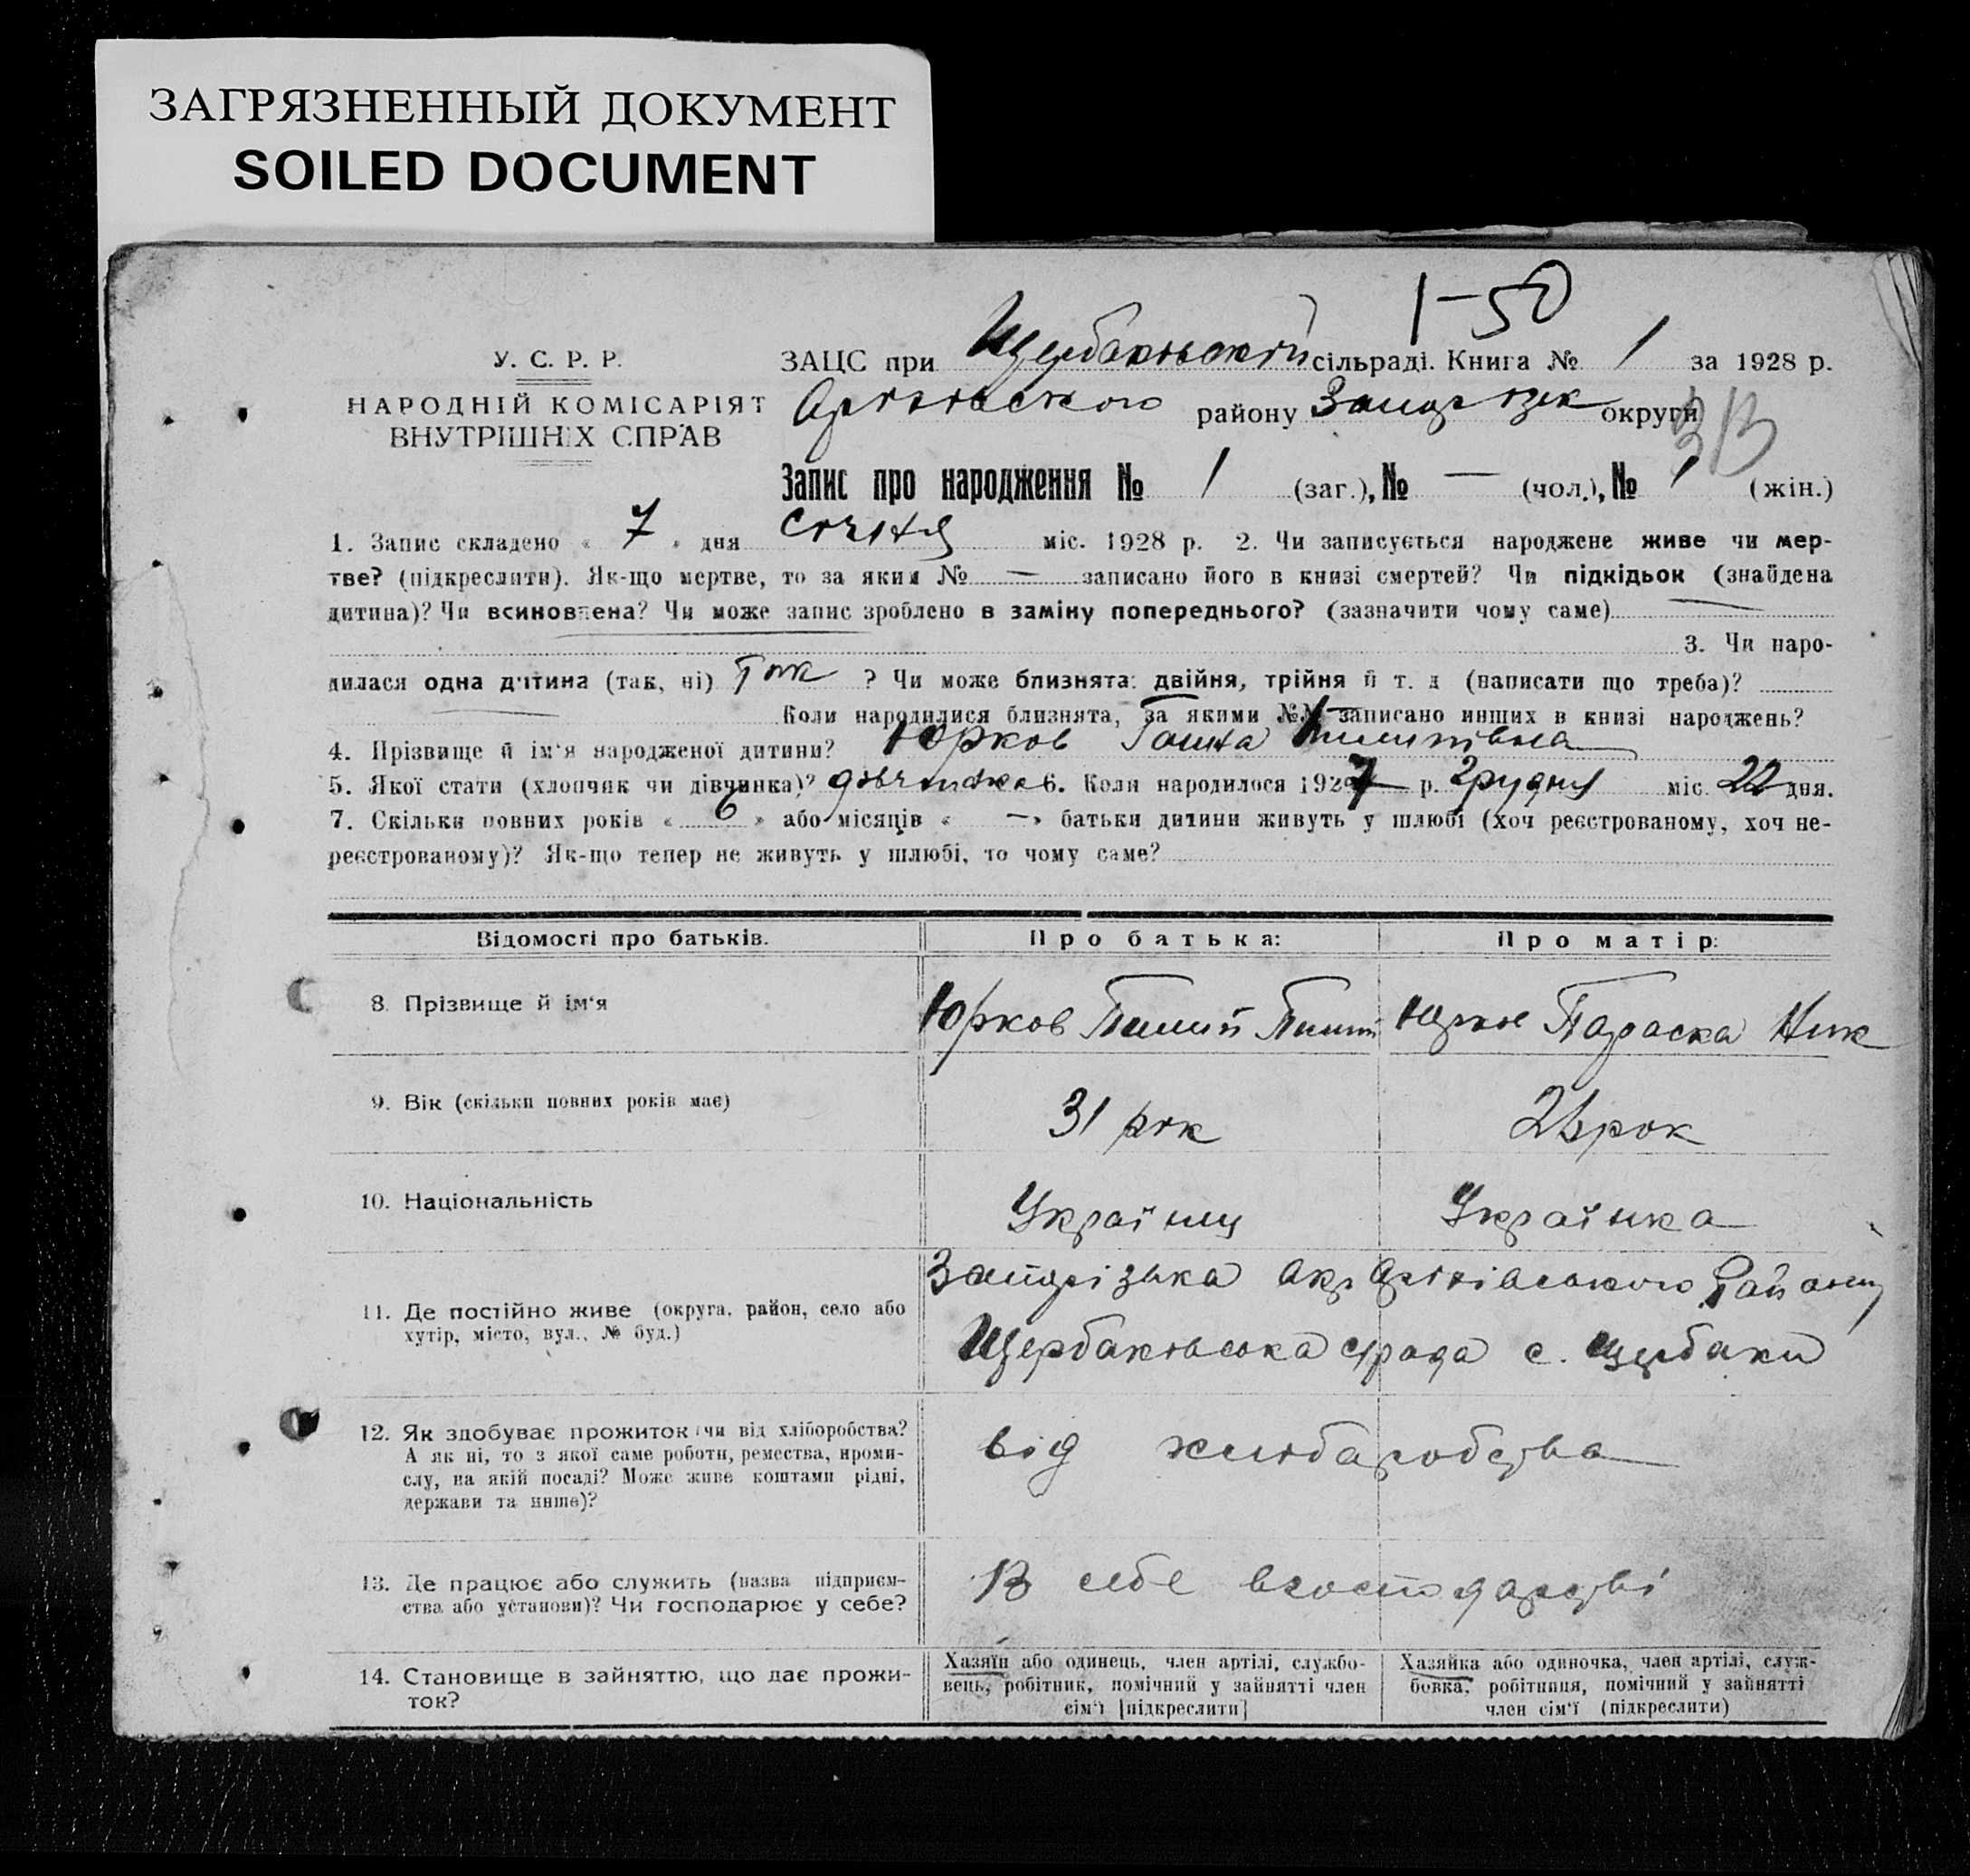 ЗАГРЯЗНЕННЫЙ ДОКУМЕНТ
SOILED DOCUMENT
1-50
У. С. Р. Р.
НАРОДНІЙ КОМІСАРІЯТ
ВНУТРІШНІХ СПРАВ
ЗАЦС при Щербаківській сільраді. Книга № 1 за 1928 р.
району округи
Запис про народження № 1 (заг.), № — (чол.), № 1 (жін.)
1. Запис складено « 7 » дня січня міс. 1928 р. 2. Чи записується народжене живе чи мер-
тве? (підкреслити). Як-що мертве, то за яким № — записано його в книзі смертей? Чи підкідьок (знайдена
дитина)? Чи всиновлена? Чи може запис зроблено в заміну попереднього? (зазначити чому саме) —
3. Чи наро-
дилася одна дитина (так, ні) Так ? Чи може близнята: двійня, трійня й т. д (написати що треба)?
Коли народилися близнята, за якими №№ записано инших в книзі народжень?
4. Прізвище й ім'я народженої дитини? Юрков Ганна Пилипівна
5. Якої стати (хлопчик чи дівчинка)? дівчинка 6. Коли народилося 1927 р. грудня міс. 22 дня.
7. Скільки повних років « 6 » або місяців « — » батьки дитини живуть у шлюбі (хоч реєстрованому, хоч не-
реєстрованому)? Як-що тепер не живуть у шлюбі, то чому саме?
Відомості про батьків. Про батька: Про матір:
8. Прізвище й ім'я Юрков Пилип Пилип Юрков Параска Ник
9. Вік (скільки повних років має) 31 рік рок
10. Національність Українц Українка
11. Де постійно живе (округа, район, село або
хутір, місто, вул., № буд.)
Запорізька окр Району
Щербаківська с/рада с. Щербаки
12. Як здобуває прожиток (чи від хліборобства?
А як ні, то з якої саме роботи, ремества, проми-
слу, на якій посаді? Може живе коштами рідні,
держави та инше)?
від хлібаробства
13. Де працює або служить (назва підприєм-
ства або установи)? Чи господарює у себе?
В себе вгосподарстві
14. Становище в зайняттю, що дає прожи-
ток?
Хазяїн або одинець, член артілі, службо-
вець, робітник, помічний у зайнятті член
сім'ї [підкреслити]
Хазяйка або одиночка, член артілі, служ-
бовка, робітниця, помічний у зайнятті
член сім'ї (підкреслити)